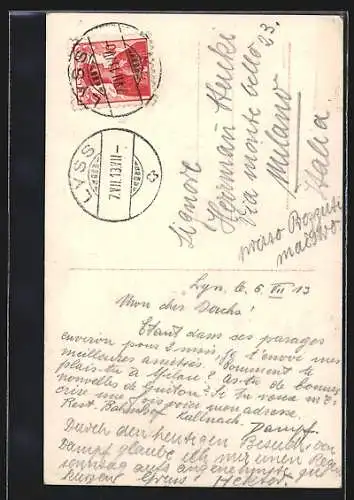 LYSS
LYSS
7.VII.13.XI-
Signore
Hermann Henki
Via monte bello 23.
Milano
Italia
Lyn, le 6. VII 13
Mon cher Dachs!
Etant dans ces parages
environ pour 2 mois, je t'envoie mes
meilleures amitiés. Comment te
plais-tu à Milan? As-tu de bonnes
nouvelles de Guiton? Si tu veux m'é-
crire une fois voici mon adresse.
Rest. Bahnhof Kallnach. Dampf.
Durch den heutigen Besuch, von
Dampf glaube ich mir einen Regen-
sonntag aufs angenehmste zu
kürzen! Gruss Hektor